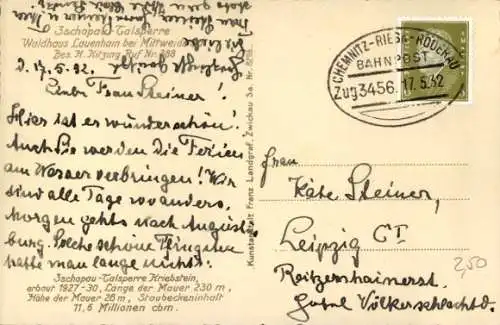 Zschopau-Talsperre
Waldhaus Lauenhain bei Mittweida
Bes. H. Kitzing Ruf Nr. 298
d. 17.5.32.
Liebe Frau Steiner!
Hier ist es wunderschön!
Auch Sie werden die Ferien
am Wasser verbringen! Wir
sind alle Tage wo anders,
morgen gehts nach August
burg. Solche schöne Pfingsten
hatte man lange nicht.
Zschopau-Talsperre Kriebstein,
erbaut 1927-30, Länge der Mauer 230 m,
Höhe der Mauer 28 m, Staubeckeninhalt
11,6 Millionen cbm.
Kunstanstalt Franz Landgraf, Zwickau Sa. Nr.
CHEMNITZ-RIESA-RÖDERAU
BAHNPOST
Zug3456 17.5.32
Frau
Käte Steiner,
Leipzig
Reitzenhainerst.
Völkerschlachtd.
2,50